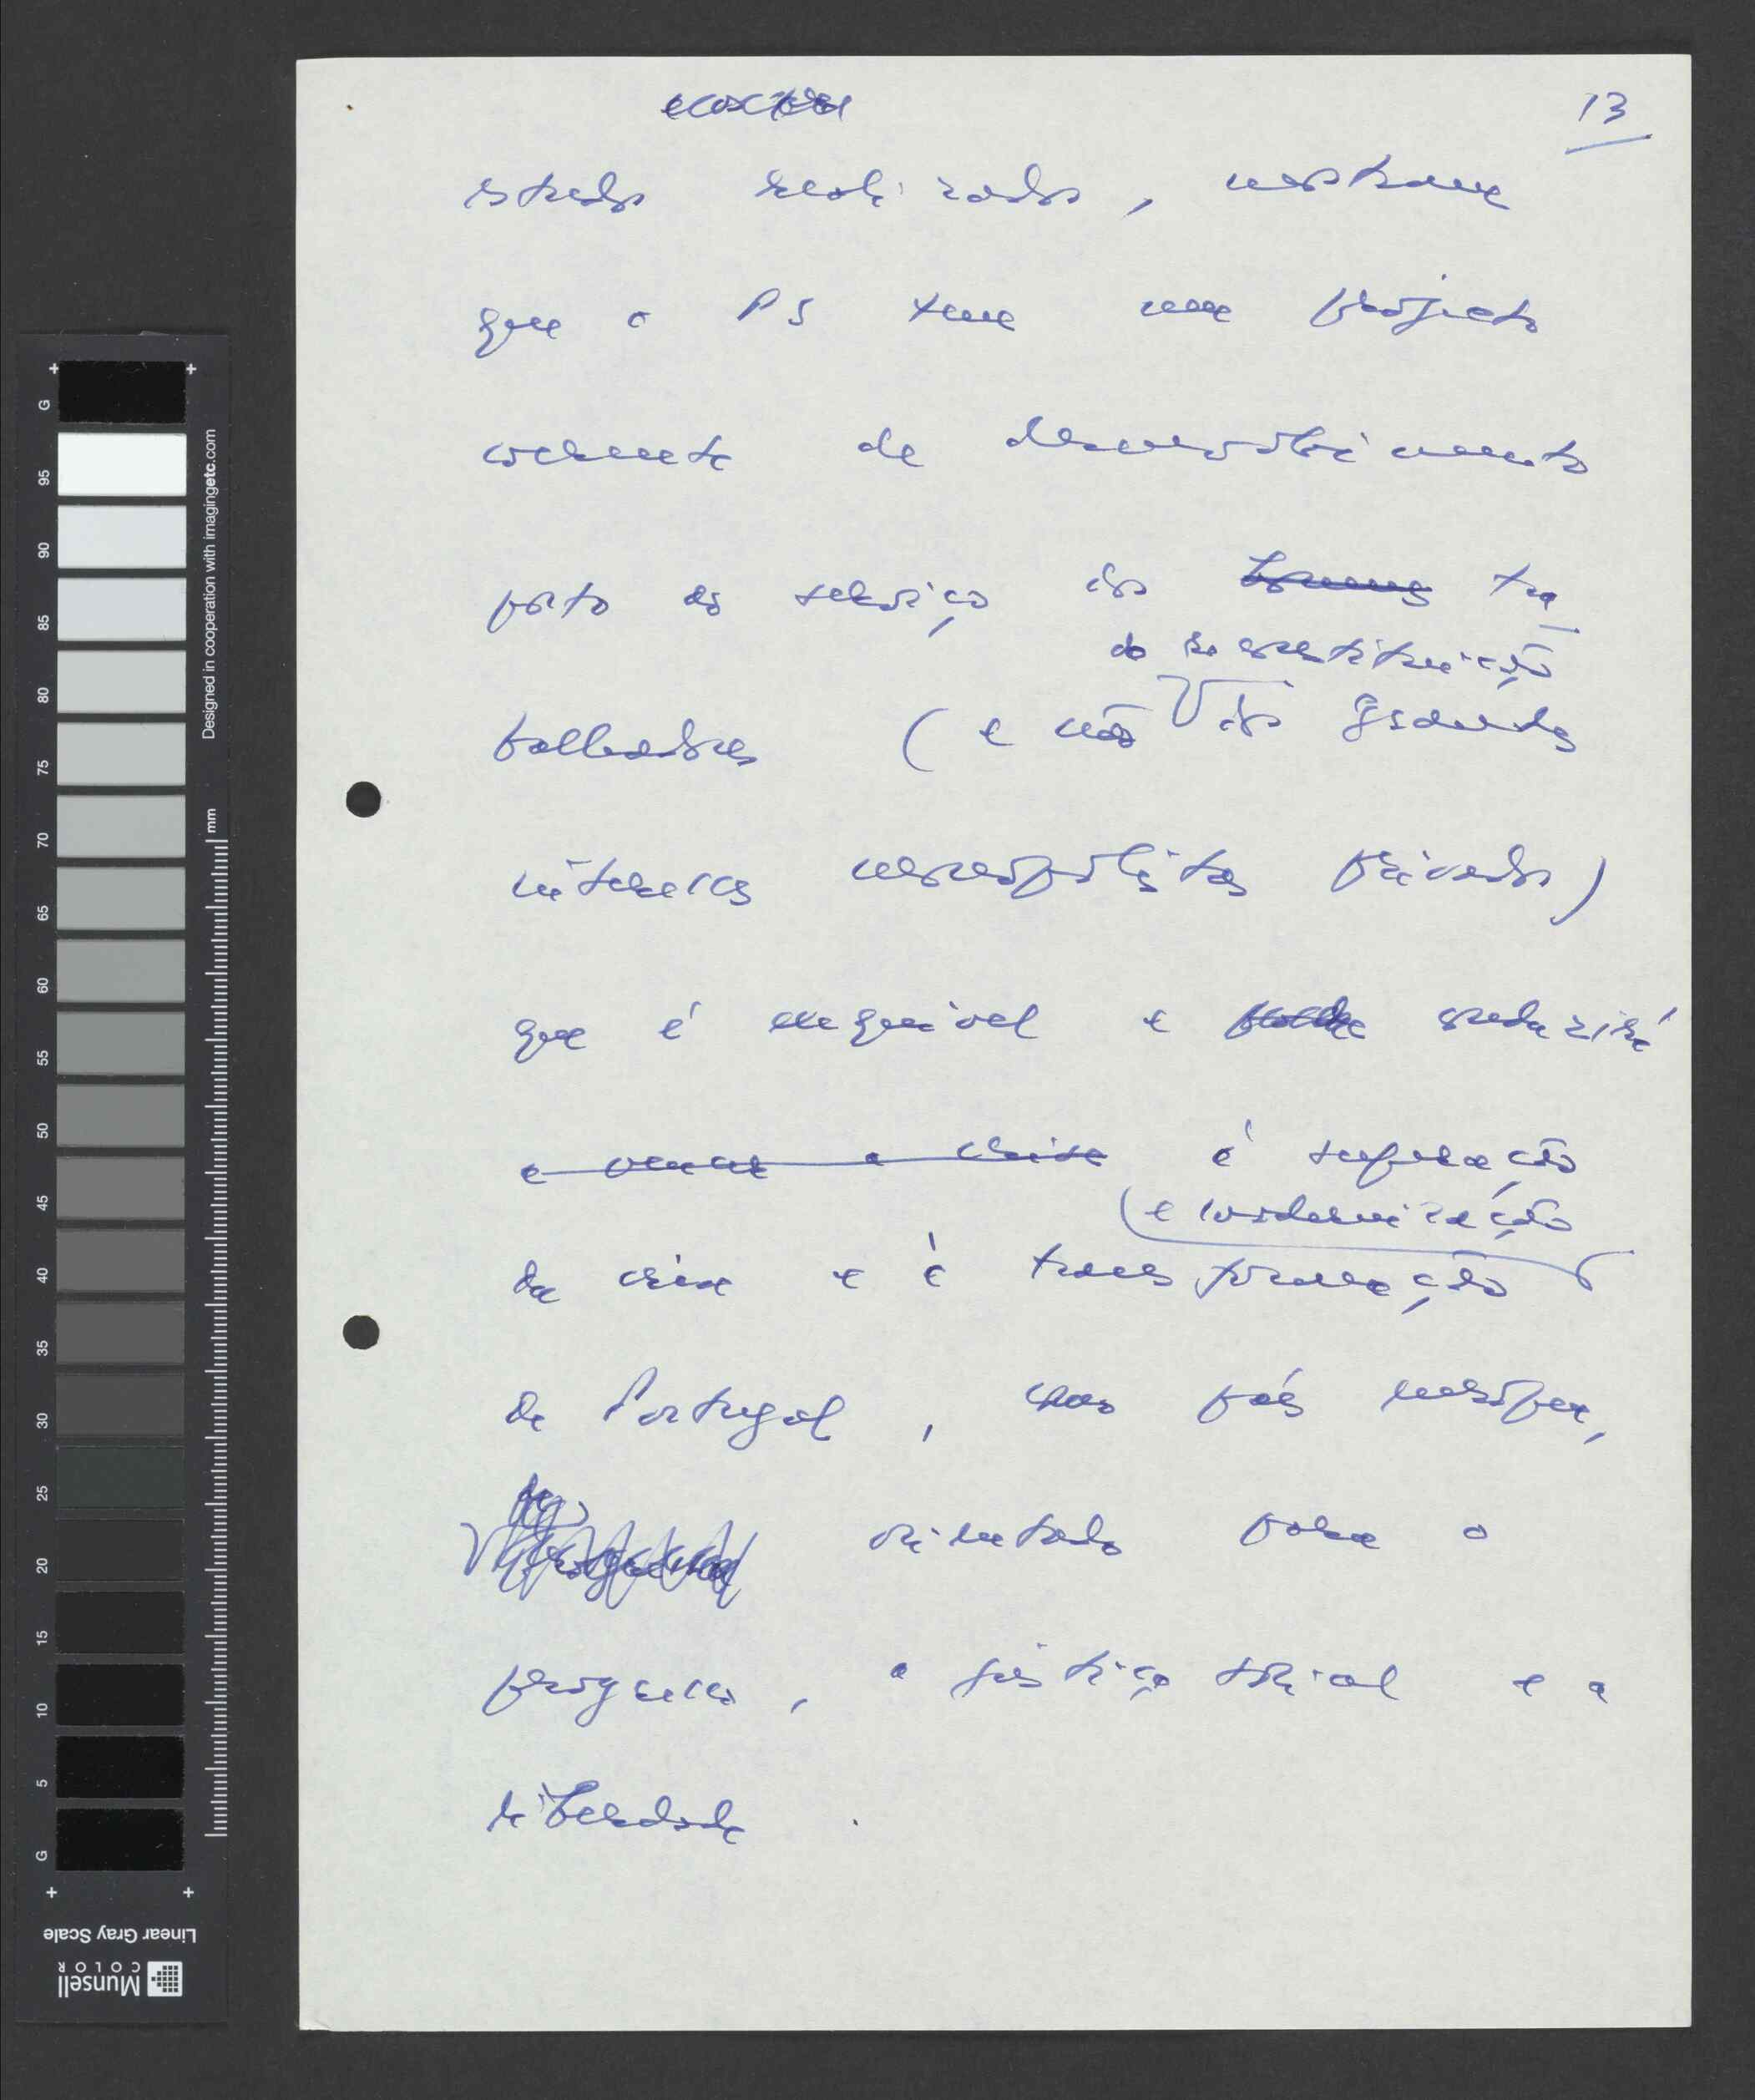 13
estudos realizados, mostram
que o PS tem um projecto
coerente de desenvolvimento
posto ao serviço dos tra
da reconstituição
balhadores (e não dos grandes
interesses monopolistas privados)
que é exequível e conduzirá
e vencer a crise à superação
(e modernização
da crise e à transformação
de Portugal, num país europeu,
orientado para o
progresso, a justiça social e a
liberdade.
G 95 90 85 80 75 70 65 60 55 50 45 40 35 30 25 20 15 10 5 G
mm
Designed in cooperation with imagingetc.com
Linear Gray Scale
Munsell
COLOR